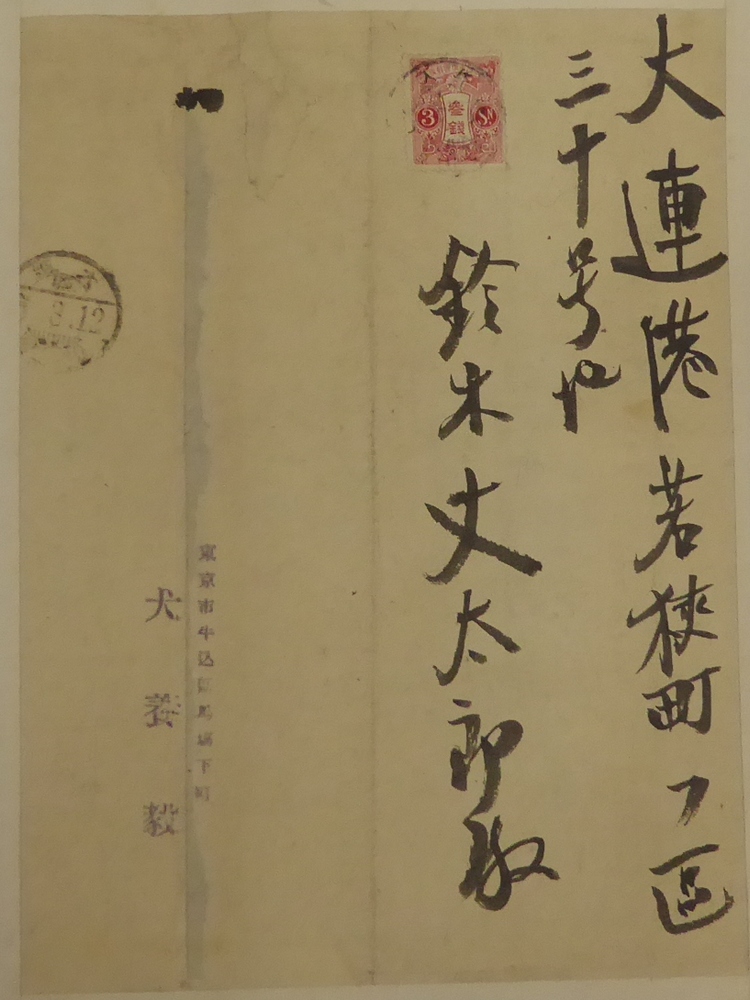 大連港若狭町フ區
三十号地
鈴木丈太郎殿
3 参銭 Sn
東京市牛込區馬場下町
犬養毅
8.12